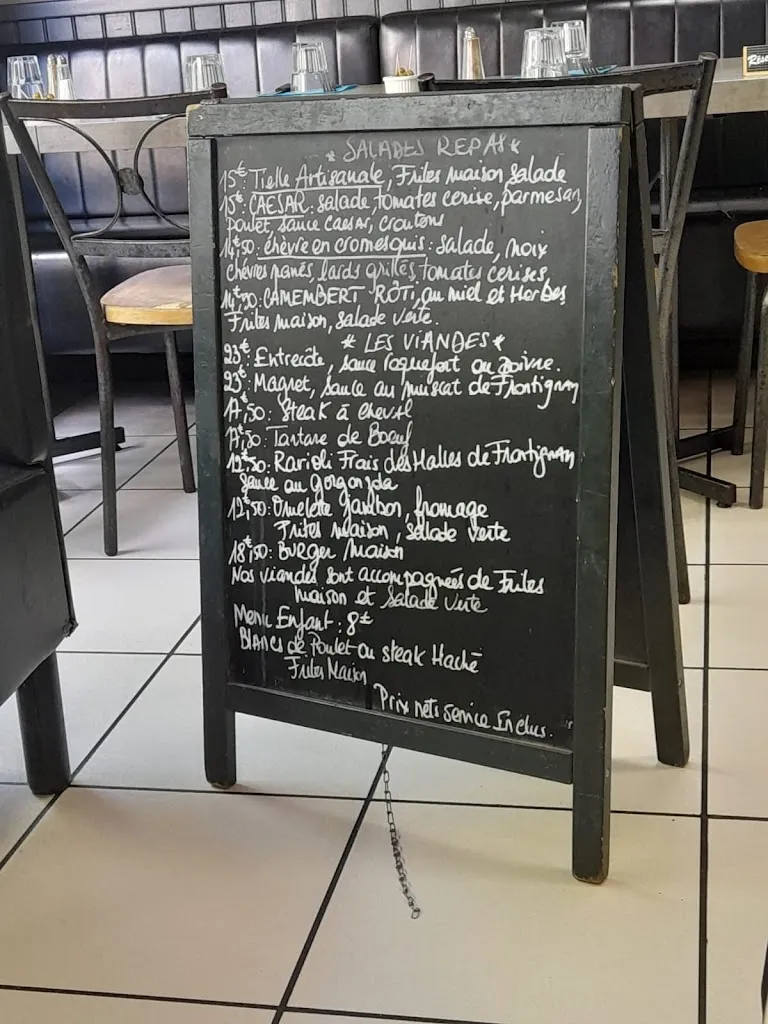 * SALADES REPAS *
15€: Tielle Artisanale, Frites maison, salade
15€: CAESAR: salade, tomates cerise, parmesan,
poulet, sauce caesar, croutons
14€,50: chèvre en cromesquis: salade, noix
chèvres panés, lards grillés, tomates cerises,
14€,50: CAMEMBERT RÔTI, au miel et Herbes
Frites maison, salade verte.
* LES VIANDES *
23€: Entrecôte, sauce roquefort ou poivre.
23€: Magret, sauce au muscat de Frontignan
17€,50: Steak à cheval
17€,50: Tartare de Boeuf
12€,50: Ravioli Frais des Halles de Frontignan
Sauce au gorgonzola
12€,50: Omelette jambon, fromage
Frites maison, salade verte
18€,50: Burger Maison
Nos viandes sont accompagnées de Frites
maison et salade verte
Menu Enfant: 8€
Blancs de Poulet ou steak Haché
Frites Maison
Prix nets service Inclus.